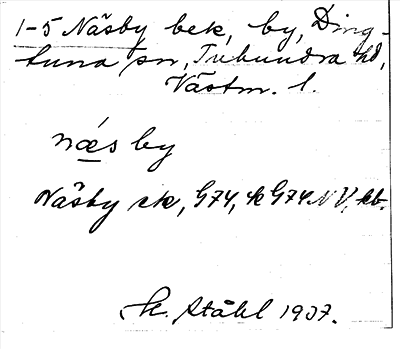 1-5 Näsby bek, by, Ding-
tuna sn, Tuhundra hd,
Västm. l.
næs by
Näsby ek, G74, k G74 NV, kb.
H. Ståhl 1937.